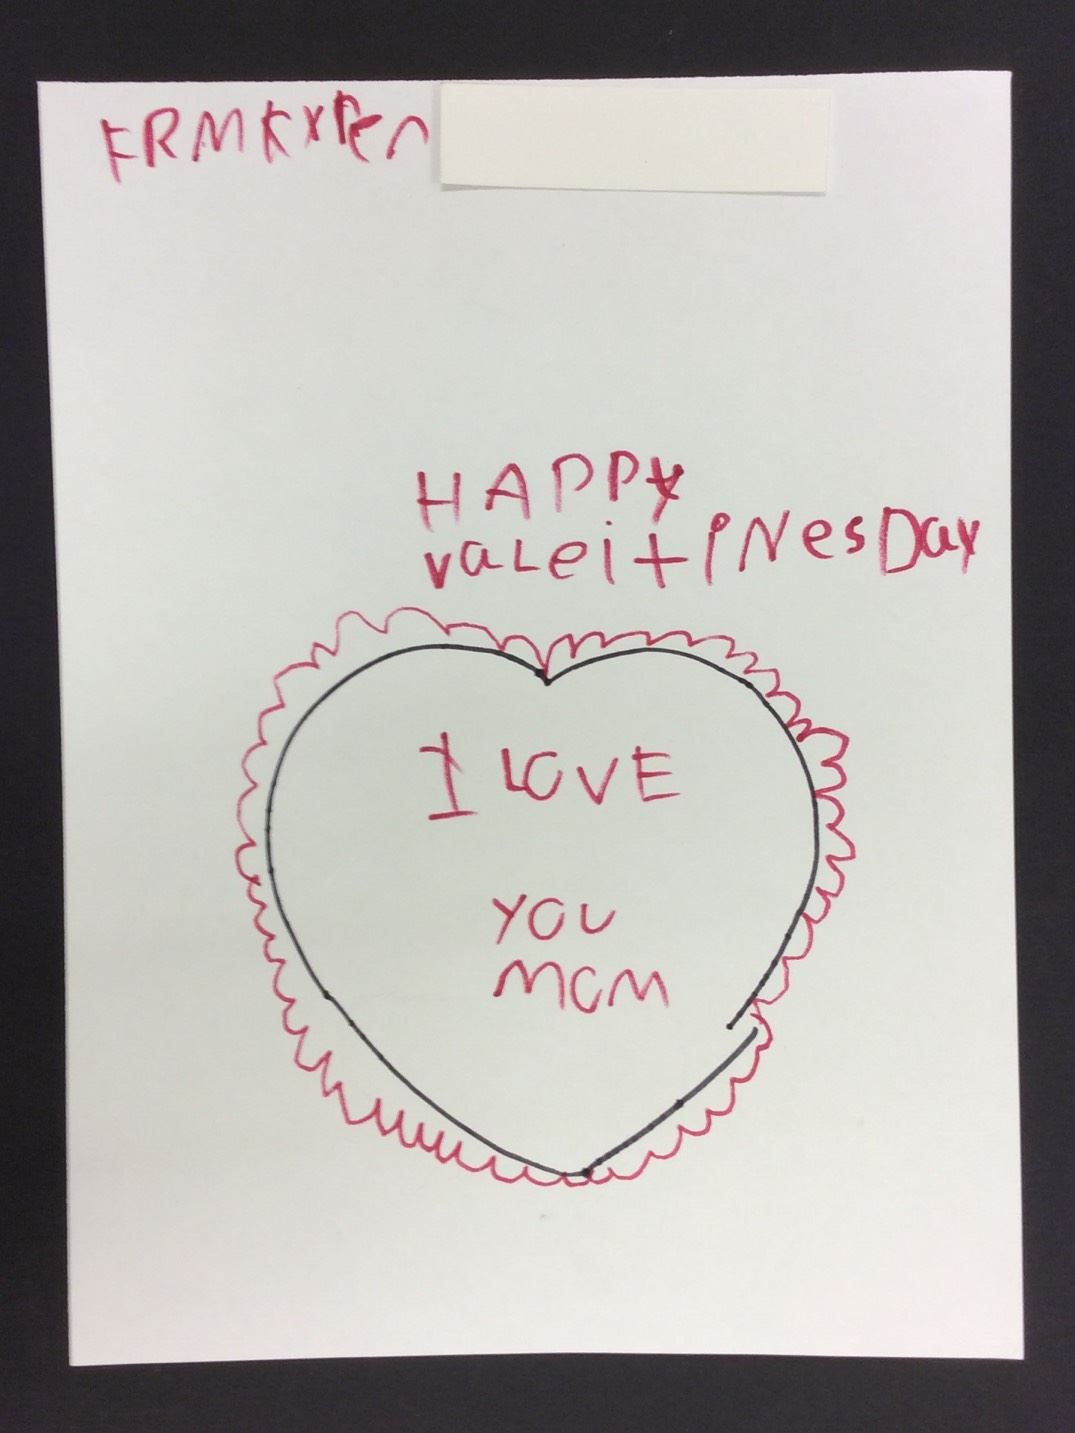 FRM KYREn
HAPPY
valeitiNesDay
I LOVE
YOU
MOM